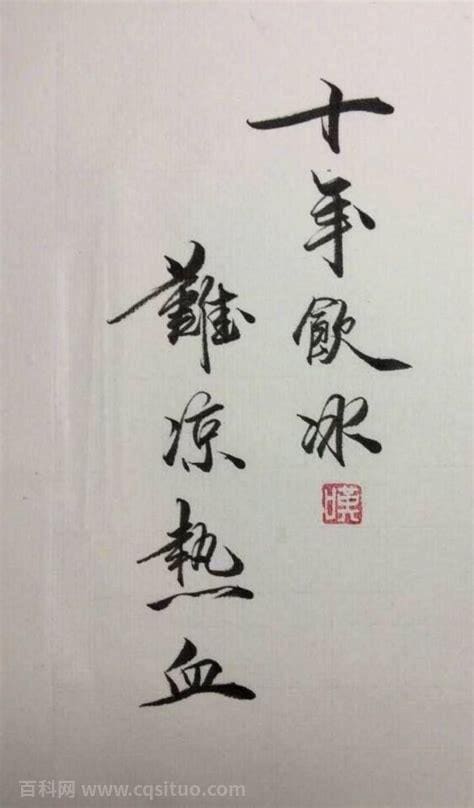 十年飲冰
難涼熱血
百科网 www.cqsituo.com